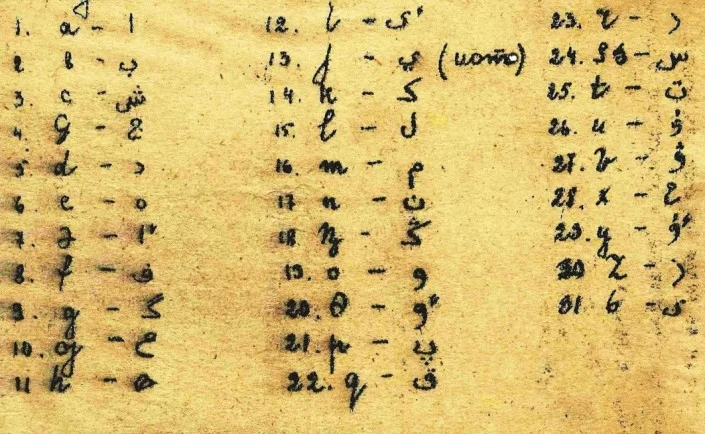 1. a - ا
2 в - ب
3. c - ش
4. ç - چ
5 d - د
6 e - ە
7. ə - اٴ
8. f - ف
9. g - گ
10. ƣ - ع
11 h - ھ
12. i - ىٴ
13. j - ي (иото)
14. k - ک
15. l - ل
16. m - م
17 n - ن
18 ŋ - ڭ
19. o - و
20. ɵ - وٴ
21. p - پ
22. q - ق
23. r - ر
24. s - س
25. t - ت
26. u - ۇ
27. v - ۋ
28. x - خ
29. y - ۇٴ
30 z - ز
31 ь - ى